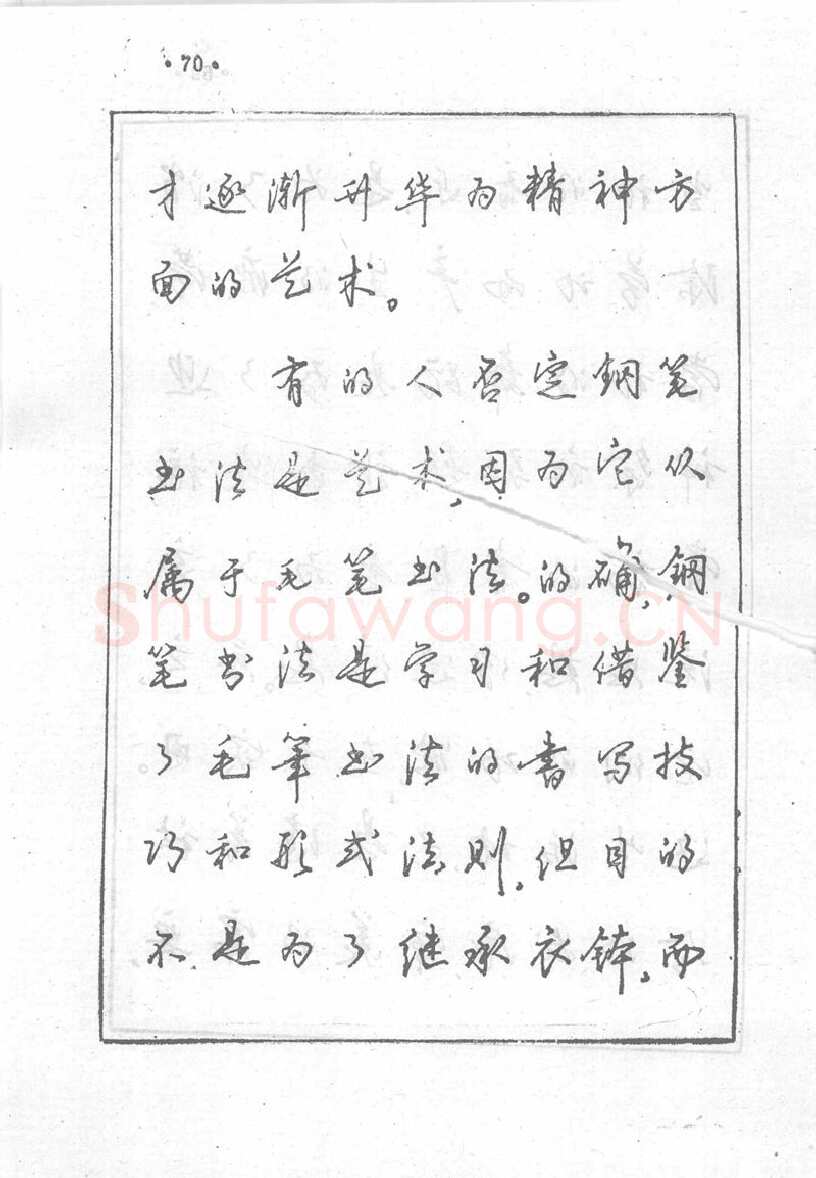 ·70·
才逐渐升华为精神方
面的艺术。
有的人否定钢笔
书法是艺术,因为它从
属于毛笔书法。的确,钢
笔书法是学习和借鉴
了毛笔书法的书写技
巧和形式法则,但目的
不是为了继承衣钵,而
Shufawang.CN